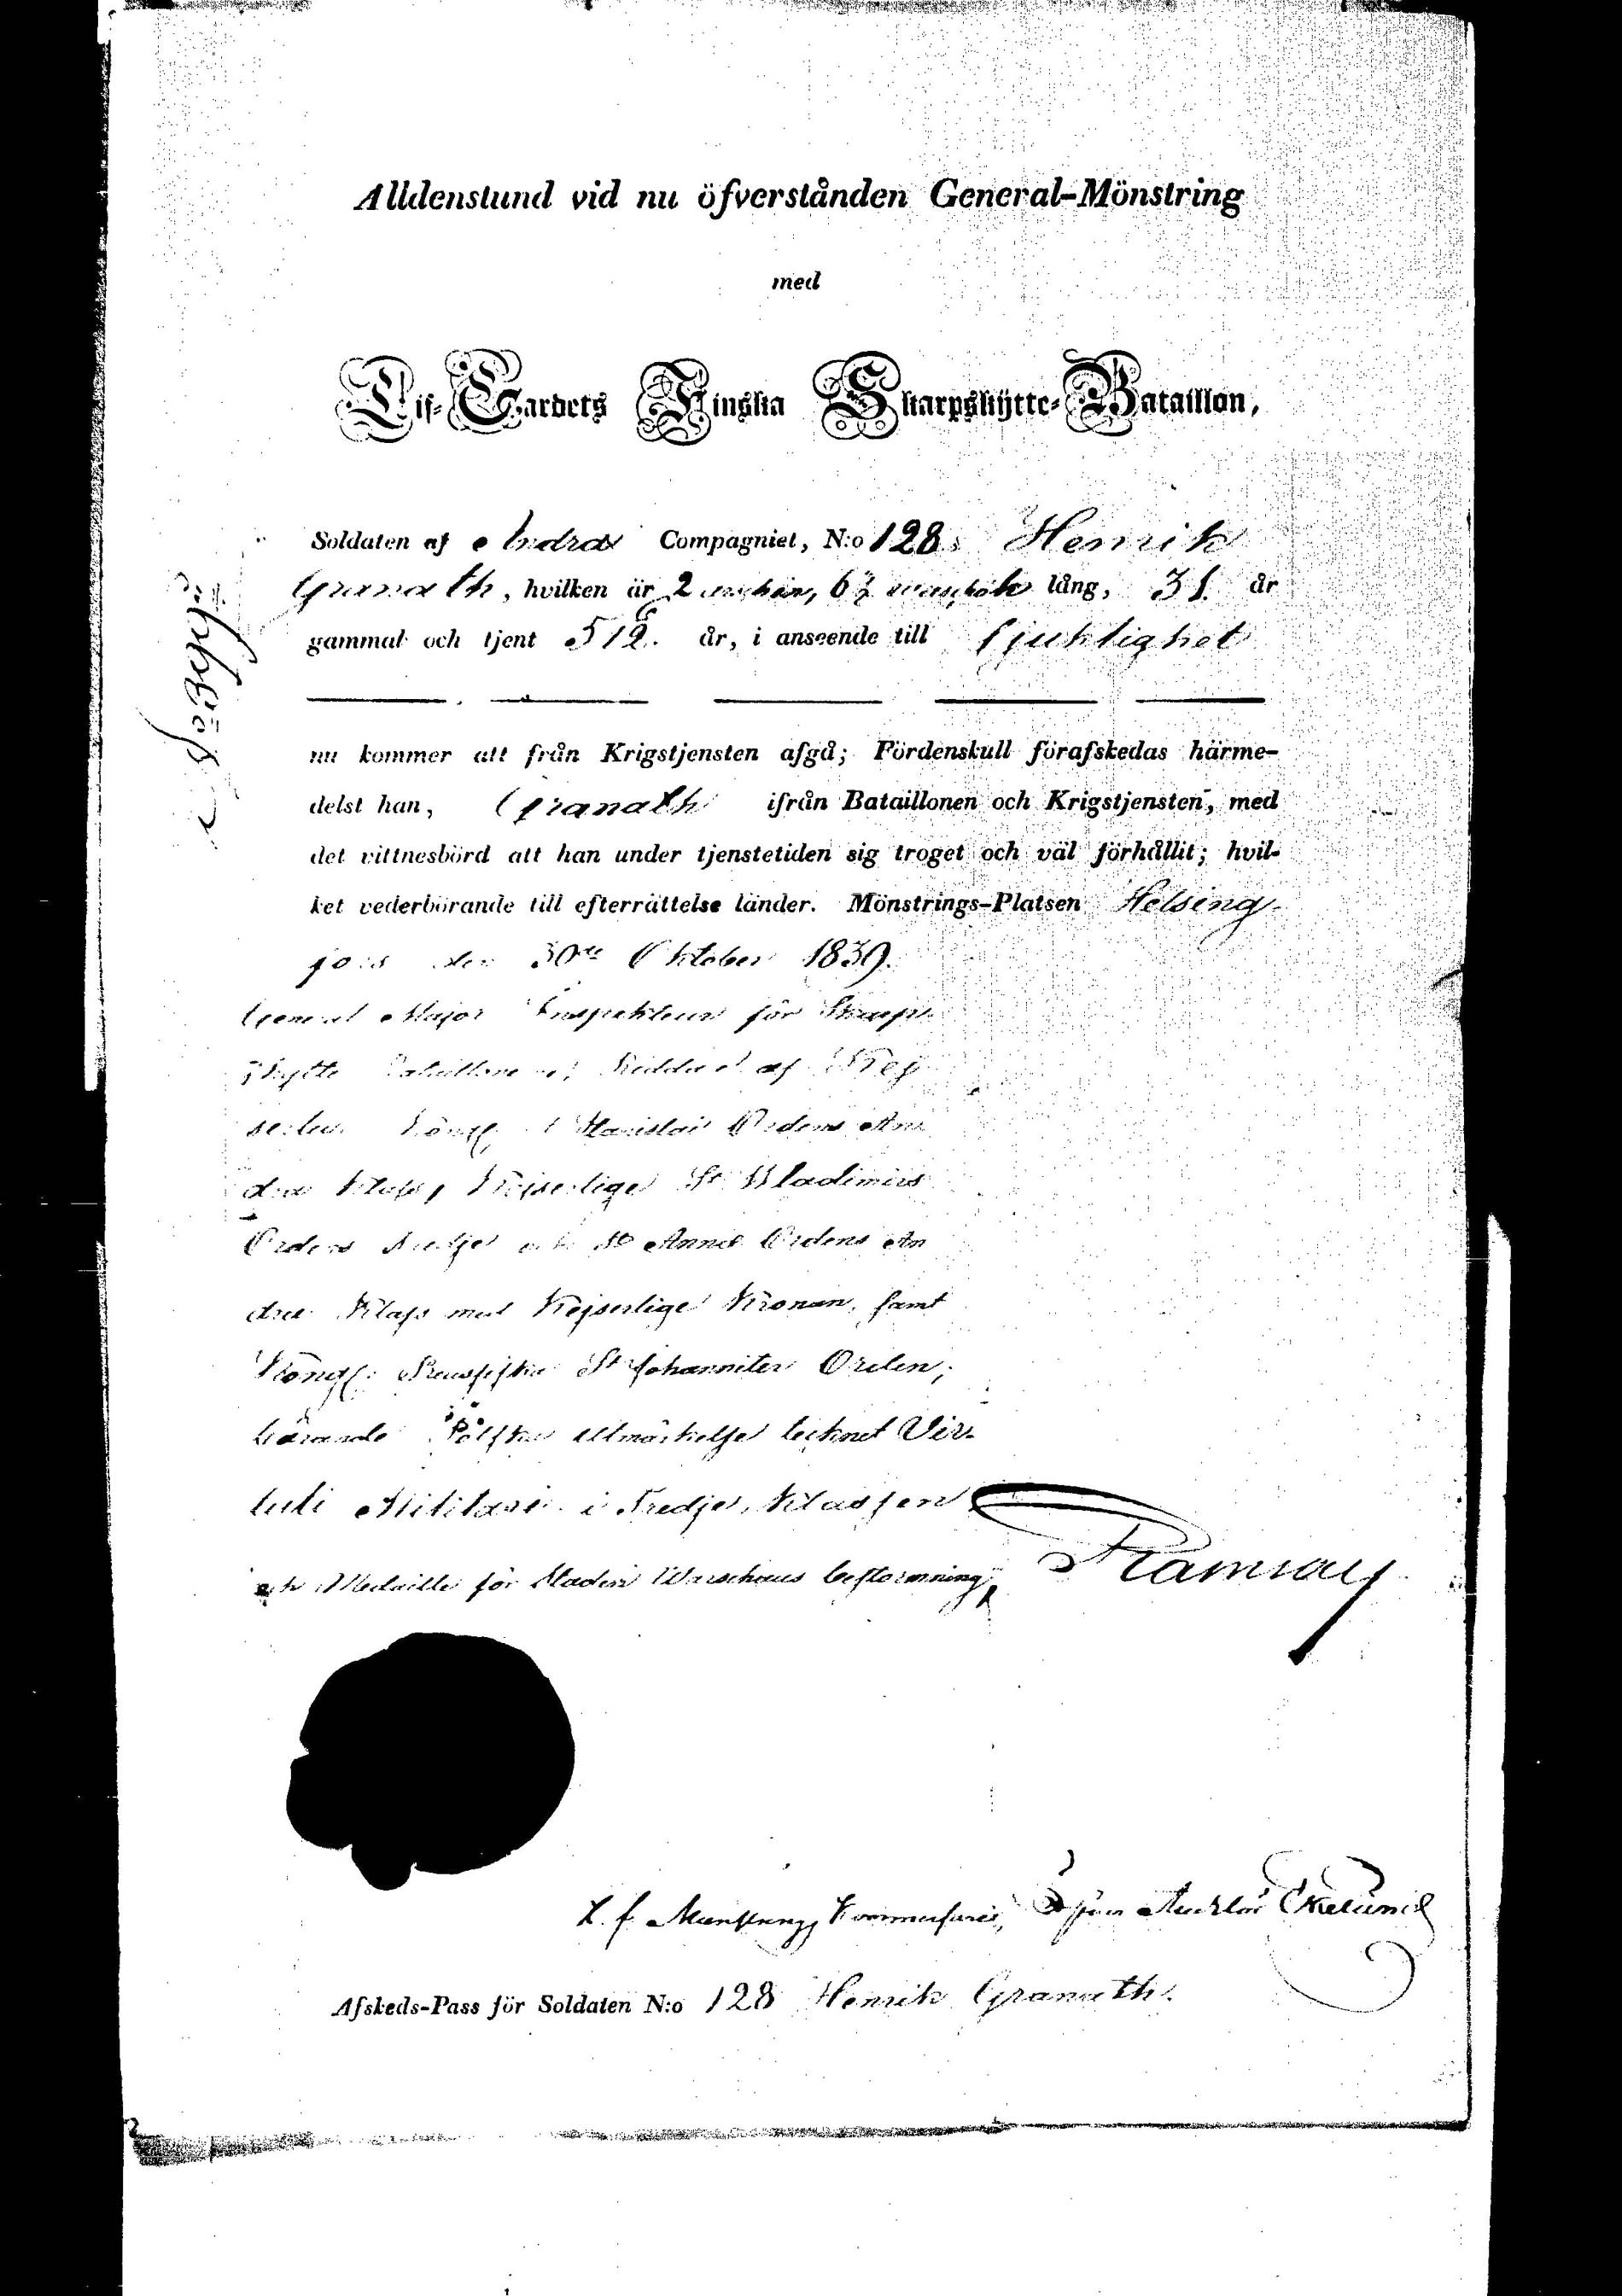 Alldenstund vid nu öfverstånden General-Mönstring
med
Lif-Gardets Finska Skarpskytte-Bataillon,
Soldaten af Andra Compagniet, N:o 128, Henrik
Granath, hvilken är 2 lång, 31 år
gammal och tjent år, i anseende till sjuklighet
nu kommer att från Krigstjensten afgå; Fördenskull förafskedas härme-
delst han, Granath ifrån Bataillonen och Krigstjensten, med
det vittnesbörd att han under tjenstetiden sig troget och väl förhållit; hvil-
ket vederbörande till efterrättelse länder. Mönstrings-Platsen Helsing-
fors den 30de Oktober 1839.
General Major Inspekteur för Skarp-
skytte Bataillonerne, Riddare af Kej-
serlig Köngl. St Stanislai Ordens An-
dra Klass, Kejserlige St Wladimirs
Ordens Tredje och St Annæ Ordens An
dra Klass med Kejserlige Kronan, samt
Köngl: Preussiska St Johanniter Orden;
bärande Polska Utmärkelse tecknet Vir-
tuti Militari i Tredje Klassen
och Medaille för staden Warschaus bestormning,
Ramsay
T. f. Mönstrings Kommissarie, Auditör Ekelund
Afskeds-Pass för Soldaten N:o 128 Henrik Granath.